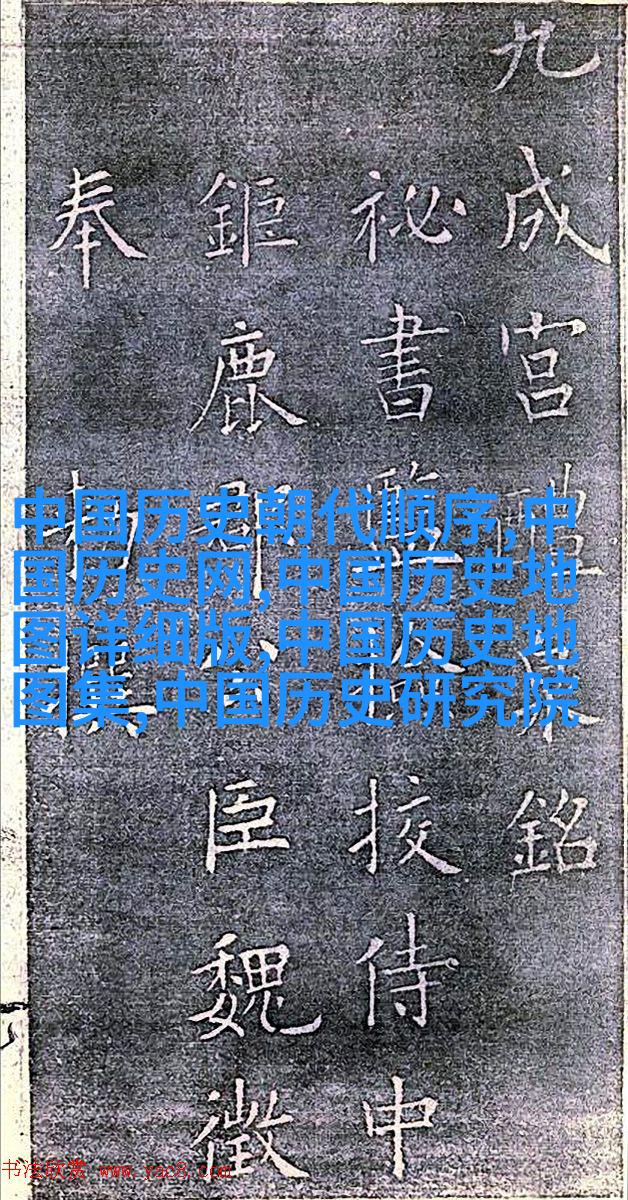 九成宫醴銘
祕書監挍侍中
鉅鹿郡臣魏徵
奉勑
中国历史朝代顺序,中
国历史网,中国历史地
图详细版,中国历史地
图集,中国历史研究院
书法欣赏 www.yac8.com